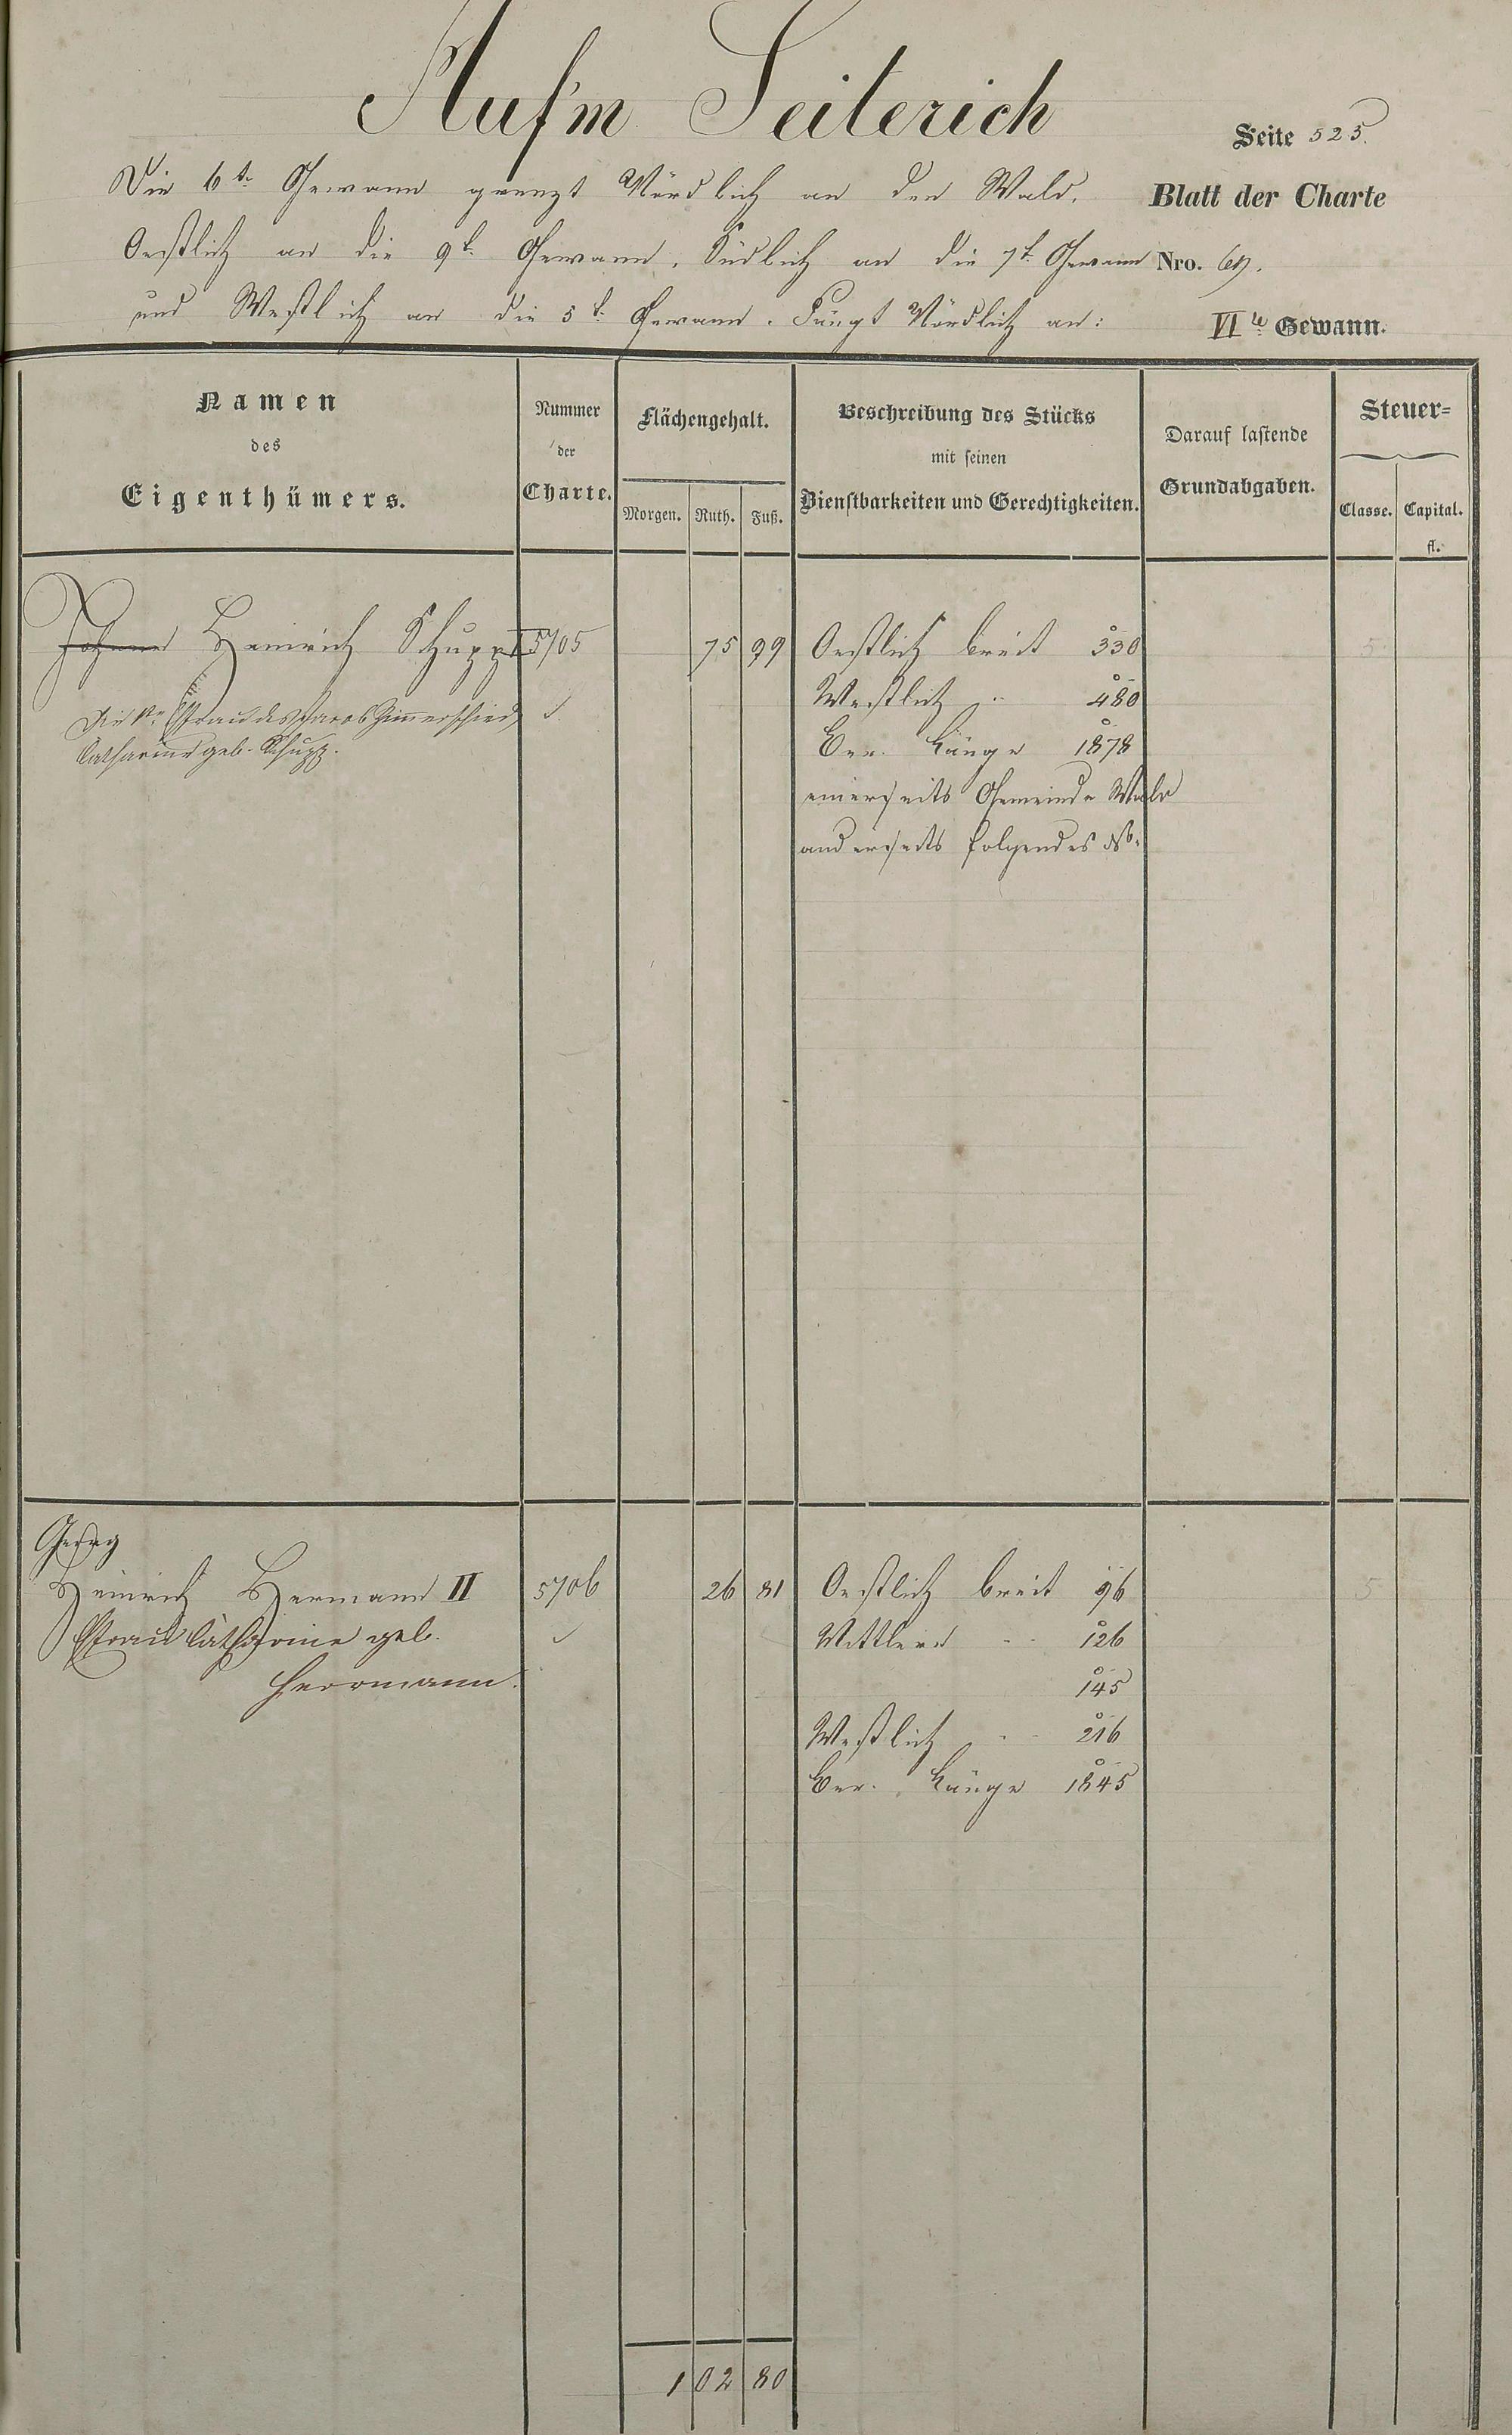 Auf'm Seiterich
Seite 523.
Die 6te Gewann grenzt Nördlich an den Wald,
Blatt der Charte
Oestlich an die 9te Gewann, Südlich an die 7te Gewann
Nro. 69.
und Westlich an die 5te Gewann. Fängt Nördlich an:
VIte Gewann.
Namen des Eigenthümers.
Nummer der Charte.
Flächengehalt.
Morgen. Ruth. Fuß.
Beschreibung des Stücks
mit seinen
Dienstbarkeiten und Gerechtigkeiten.
Darauf lastende
Grundabgaben.
Steuer=
Classe. Capital.
fl.
Heinrich Schupp I 5705 75 99 Oestlich breit 330
Westlich " 480
Ehefrau des Zimmerschied
Catharine geb. Schupp.
Ger. Länge 1878
einerseits Gemeinde Wald
anderseits folgendes No.
Georg
Heinrich Hermann II 5706 26 81 Oestlich breit 96 5
Ehefrau Catharine geb. Mittlere " 126
Herrmann. 145
Westlich " 216
Ger. Länge 1845
102 80